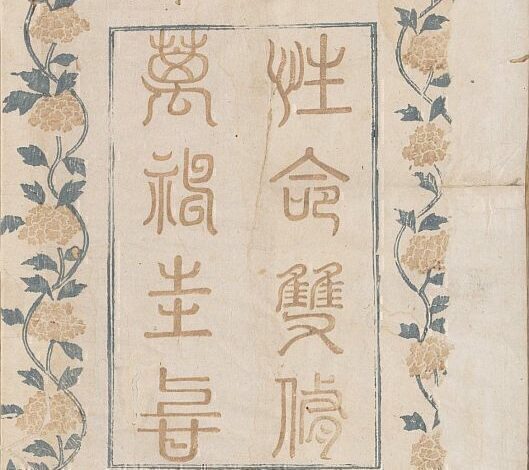 性命雙脩
萬神圭旨